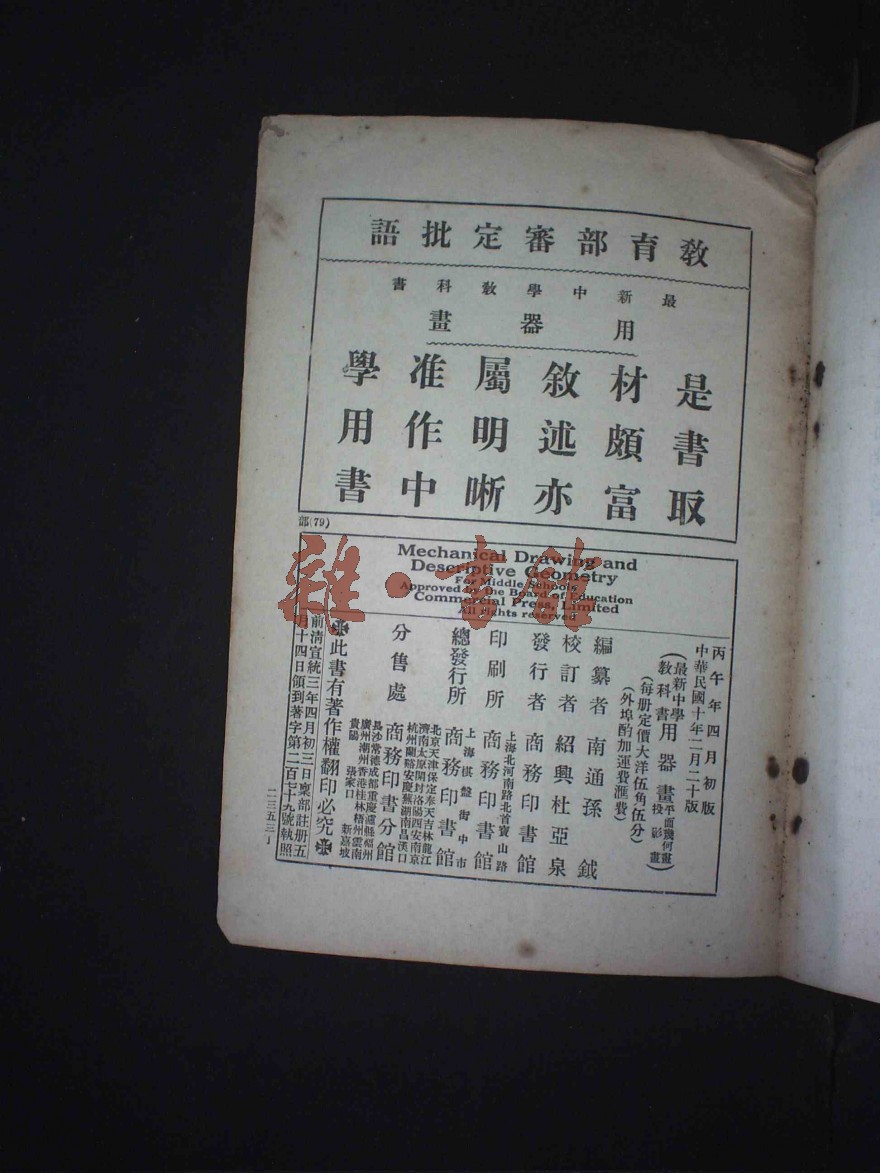 教育部審定批語
最新中學教科書
用器畫
是書取
材頗富
敘述亦
屬明晰
准作中
學用書
部(79)
Mechanical Drawing and
Descriptive Geometry
For Middle Schools
Approved by the Board of Education
Commercial Press, Limited
All rights reserved
丙午年四月初版
中華民國十年二月二十版
(最新中學教科書用器畫平面幾何畫投影畫)
(每册定價大洋伍角伍分)
(外埠酌加運費滙費)
編纂者 南通孫鉞
校訂者 紹興杜亞泉
發行者 商務印書館
上海北河南路北首寶山路
印刷所 商務印書館
上海棋盤街中市
總發行所 商務印書館
北京天津保定奉天吉林龍江
濟南太原開封洛陽西安南京
杭州蘭谿安慶蕪湖南昌漢口
分售處 商務印書分館
長沙常德成都重慶瀘縣福州
廣州潮州香港桂林梧州雲南
貴陽 張家口 新嘉坡
此書有著作權翻印必究
前清宣統三年四月初三日稟部註册五
月十四日領到著字第二百七十九號執照
二三五三丁
雜·書館